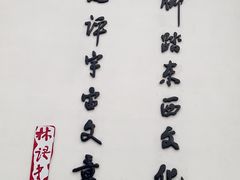 脚踏东西文化
评宇宙文章
林语堂